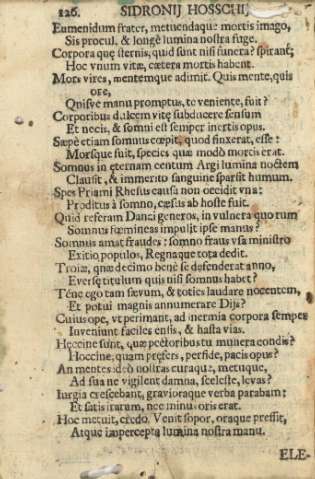 126. SIDRONII HOSSCHII
Eumenidum frater, metuendaque mortis imago,
Sis procul, & longè lumina nostra fuge.
Corpora quę sternis, quid sunt nisi funera? spirant;
Hoc vnum vitæ, cætera mortis habent.
Mors vires, mentemque adimit. Quis mente, quis
ore,
Quisve manu promptus, te veniente, fuit?
Corporibus dulcem vitę subducere sensum
Et necis, & somni est semper inertis opus.
Sæpè etiam somnus cœpit, quod finxerat, esse:
Morsque fuit, species quæ modò mortis erat.
Somnus in eternam centum Argi lumina noctem
Clausit, & immerito sanguine sparsit humum.
Spes Priami Rhesus causa non occidit vna:
Proditus à somno, cæsus ab hoste fuit.
Quid referam Danai generos, in vulnera quorum
Somnus fœmineas impulit ipse manus?
Somnus amat fraudes: somno fraus vsa ministro
Exitio populos, Regnaque tota dedit.
Troiæ, quæ decimo benè se defenderat anno,
Eversę titulum quis nisi somnus habet?
Téne ego tam sævum, & toties laudare nocentem,
Et potui magnis annumerare Dijs?
Cuius ope, vt perimant, ad inermia corpora semper
Inveniunt faciles ensis, & hasta vias.
Hęccine sunt, quæ pectoribus tu munera condis?
Hoccine, quam pręfers, perfide, pacis opus?
An mentes ideò nostras curaque, metuque,
Ad sua ne vigilent damna, sceleste, levas?
Iurgia crescebant, gravioraque verba parabam:
Et satis irarum, nec minus oris erat.
Hoc metuit, credo. Venit sopor, oraque pressit,
Atque impercepta lumina nostra manu.
ELE-